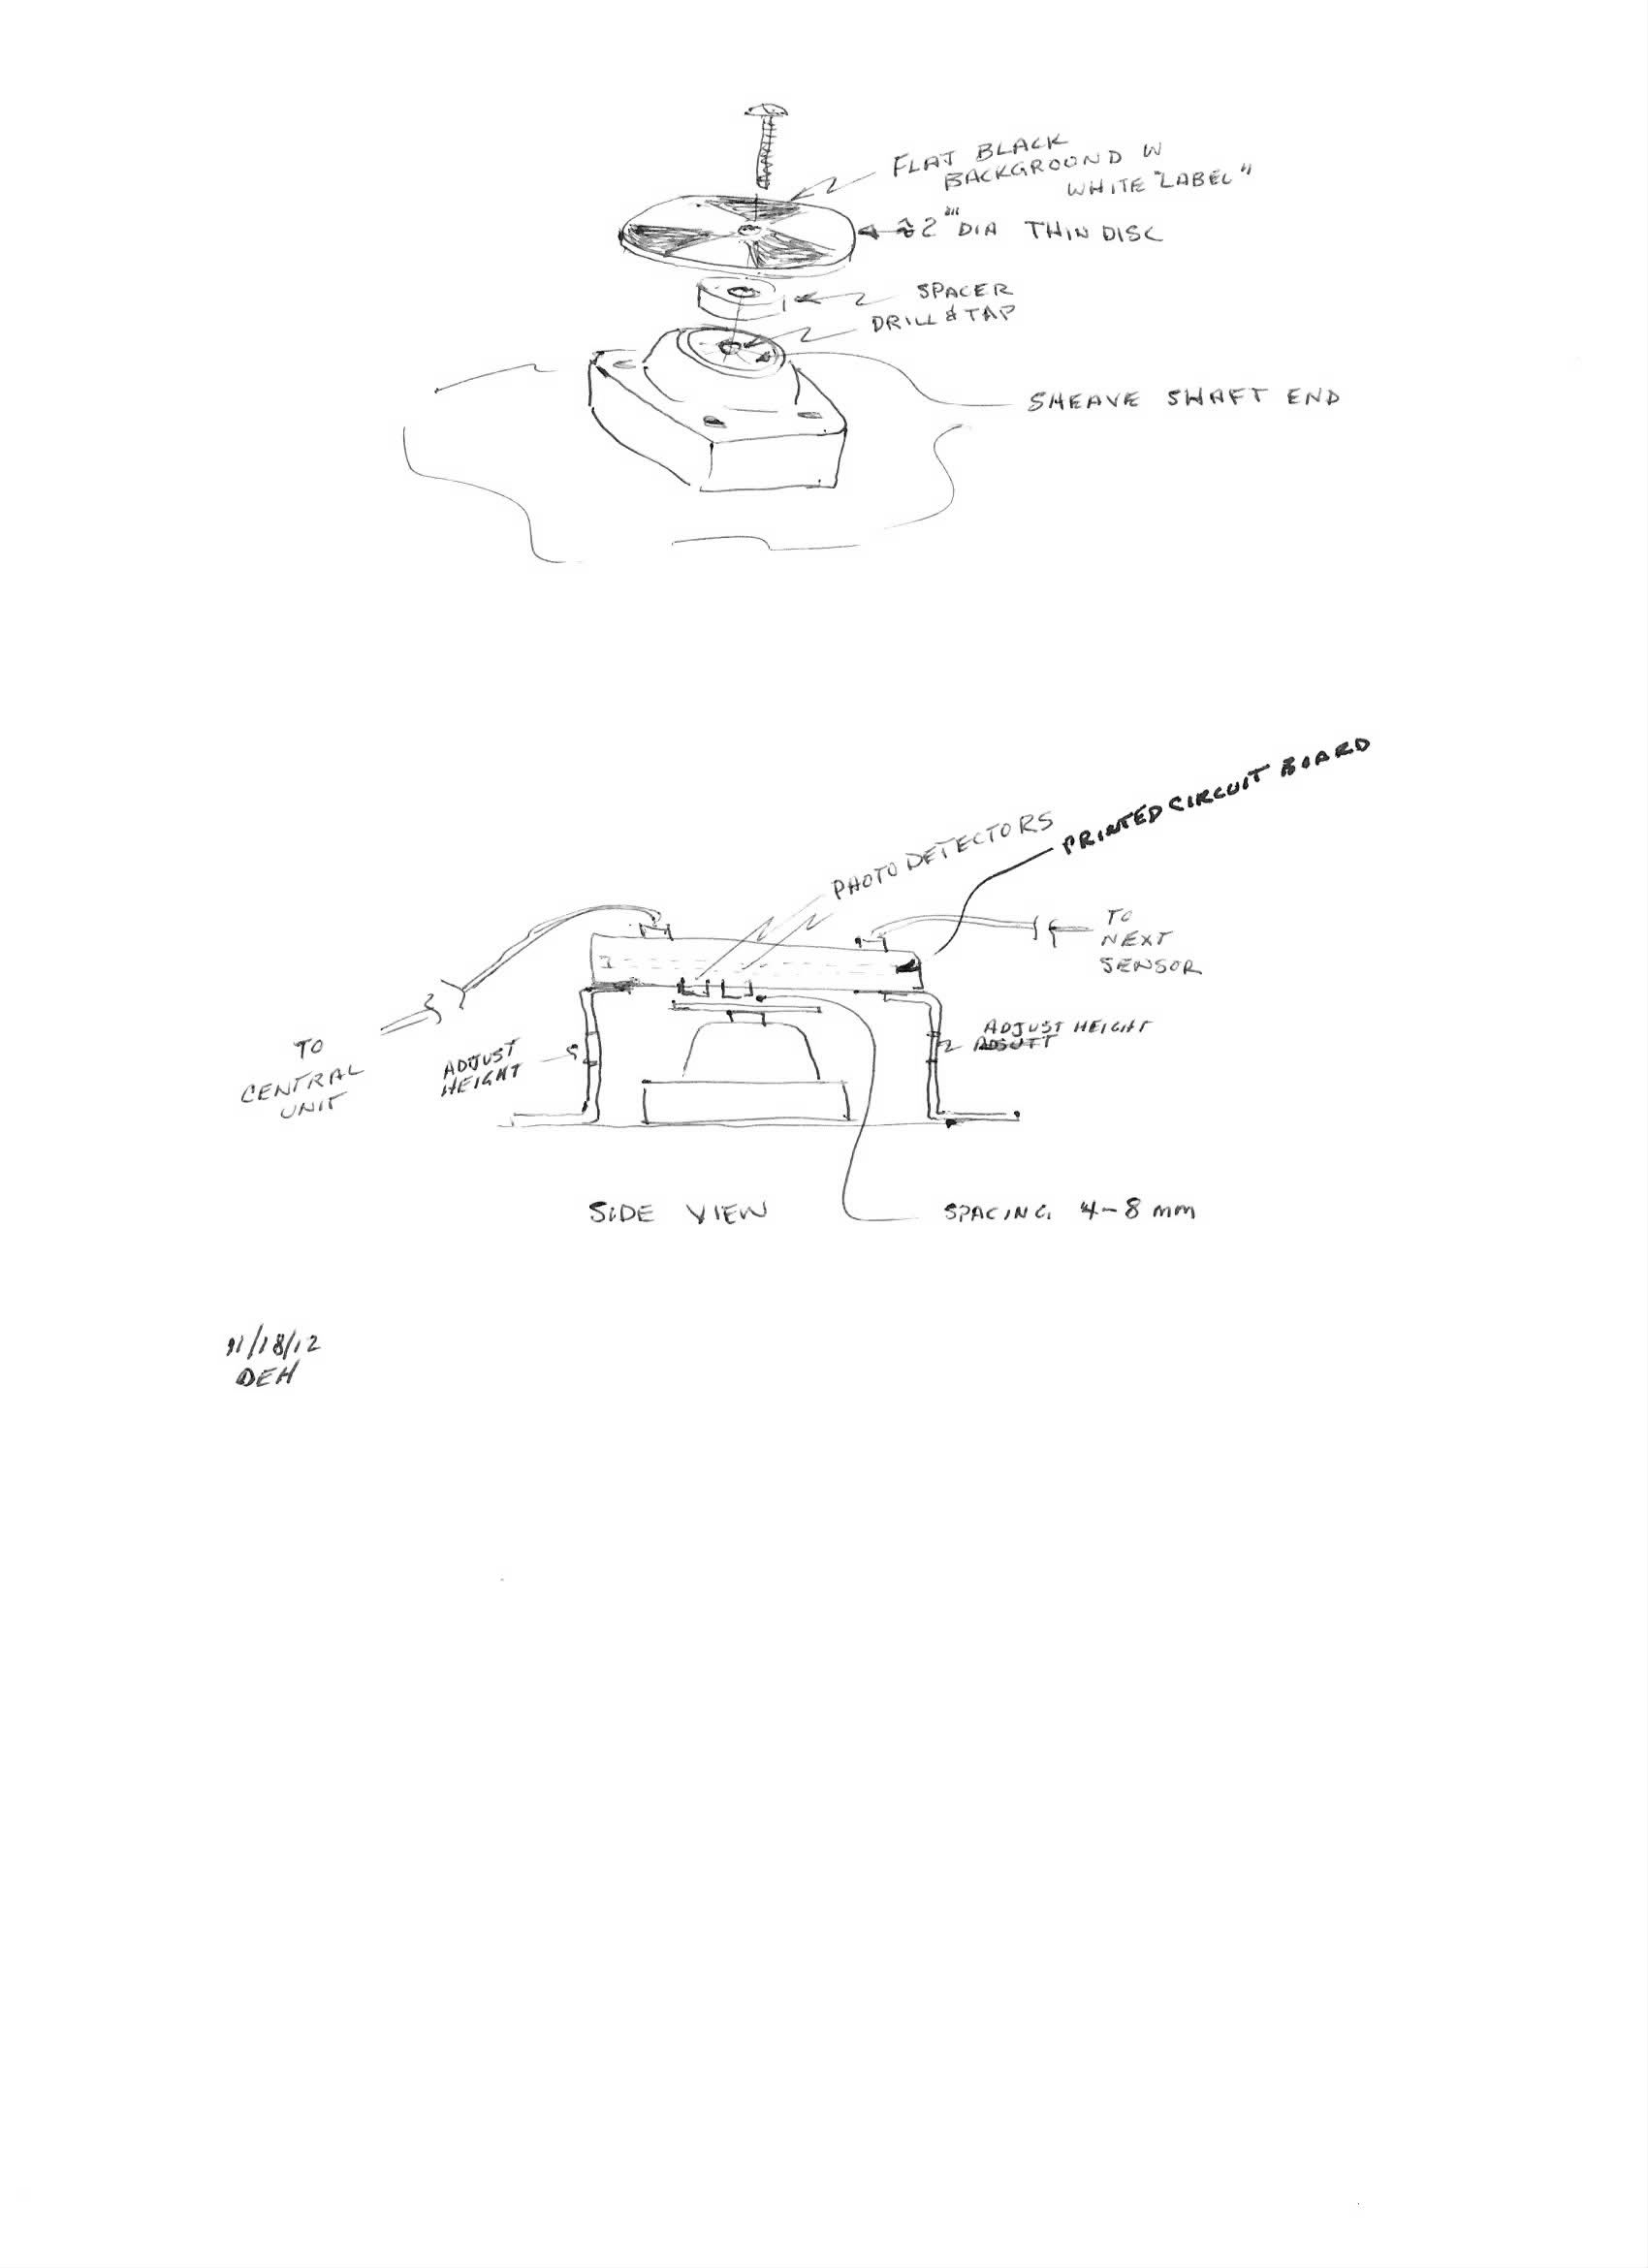 FLAT BLACK
BACKGROUND W
WHITE "LABEL"
≈2" DIA THIN DISC
SPACER
DRILL & TAP
SHEAVE SHAFT END
PRINTED CIRCUIT BOARD
PHOTO DETECTORS
TO
NEXT
SENSOR
ADJUST HEIGHT
TO
CENTRAL
UNIT
ADJUST
HEIGHT
SIDE VIEW
SPACING 4-8 mm
11/18/12
DEH